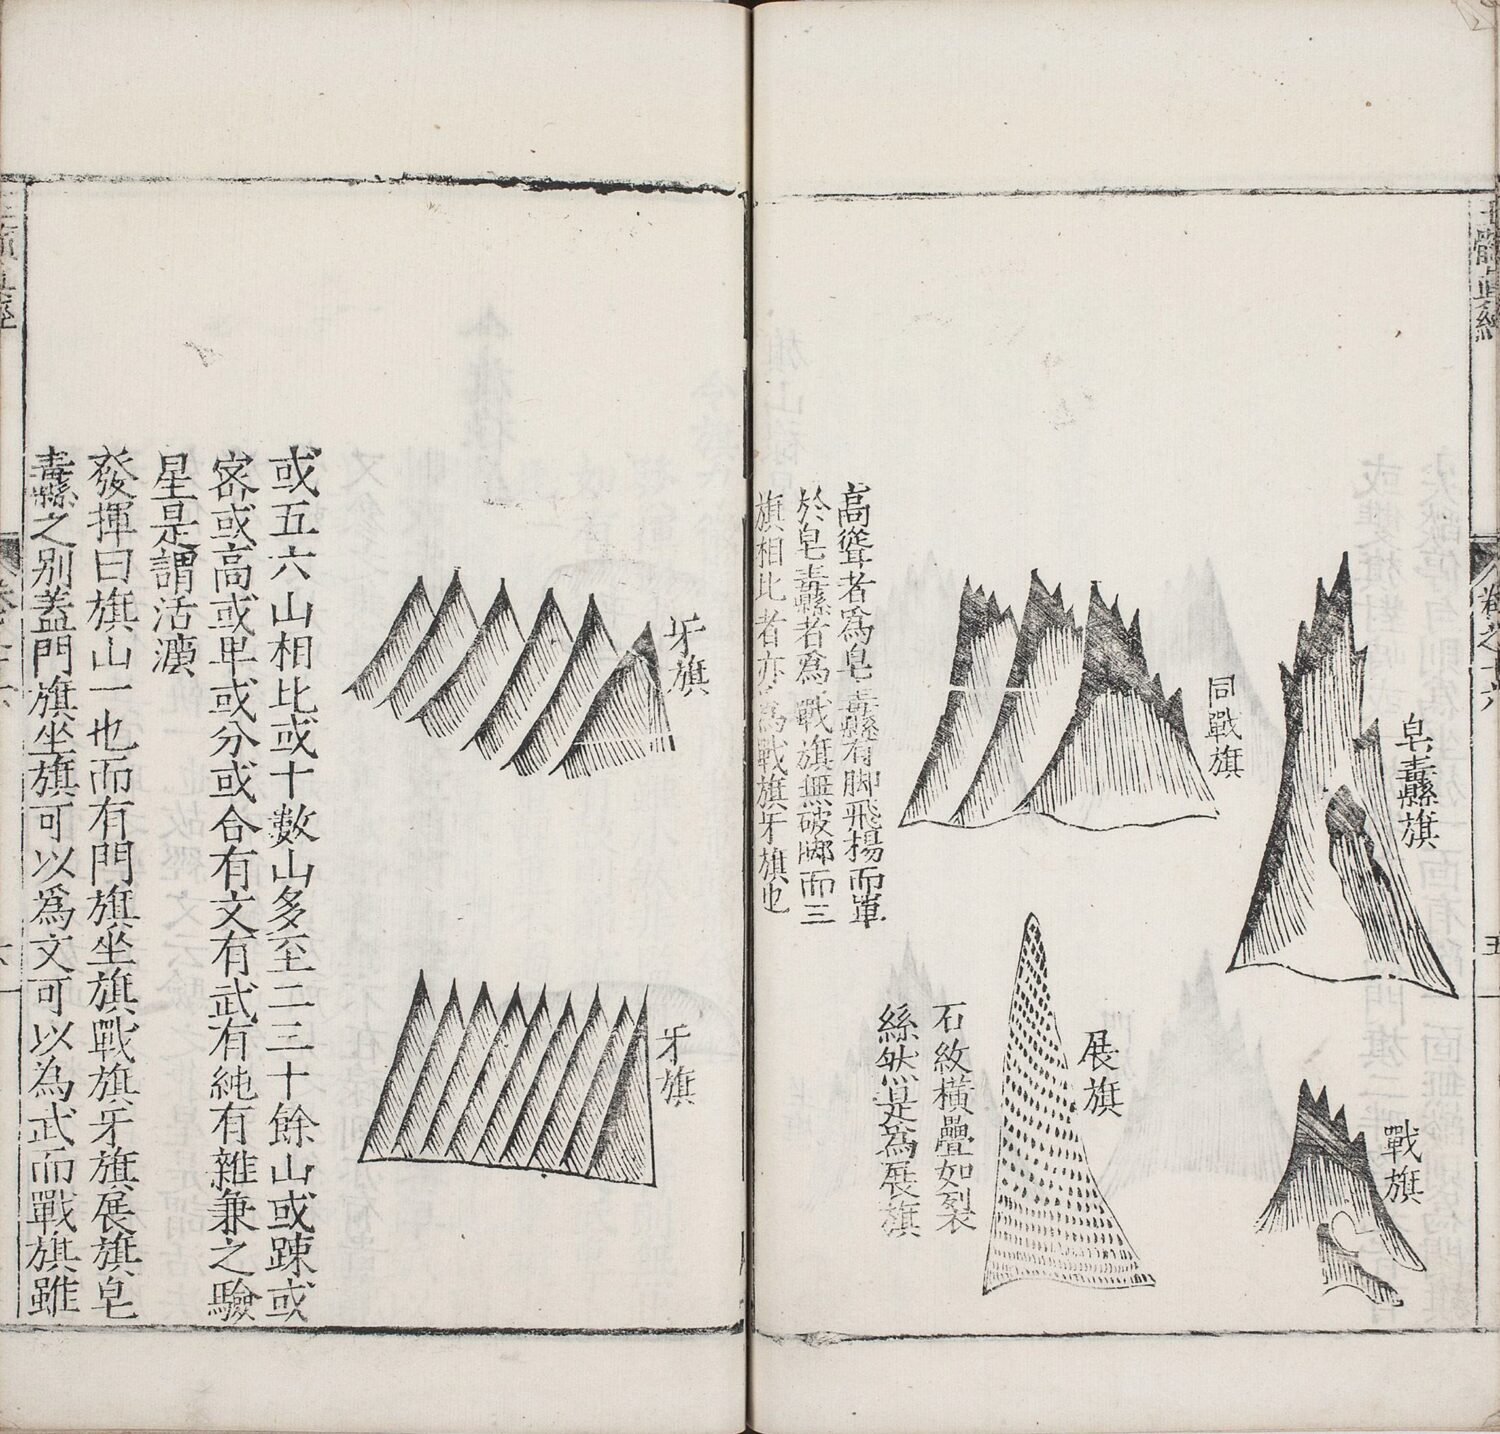 玉髓真經
卷之十六
五
皂纛旗
戰旗
同戰旗
展旗
石紋橫疊如裂
絲然是為展旗
高聳者爲皂纛有脚飛揚而單
於皂纛者爲戰旗無破脚而三
旗相比者亦爲戰旗牙旗也
牙旗
牙旗
或五六山相比或十數山多至二三十餘山或踈或
宻或高或卑或分或合有文有武有純有雜兼之驗
星是謂活灋
發揮曰旗山一也而有門旗坐旗戰旗牙旗展旗皂
纛之别蓋門旗坐旗可以爲文可以為武而戰旗雖